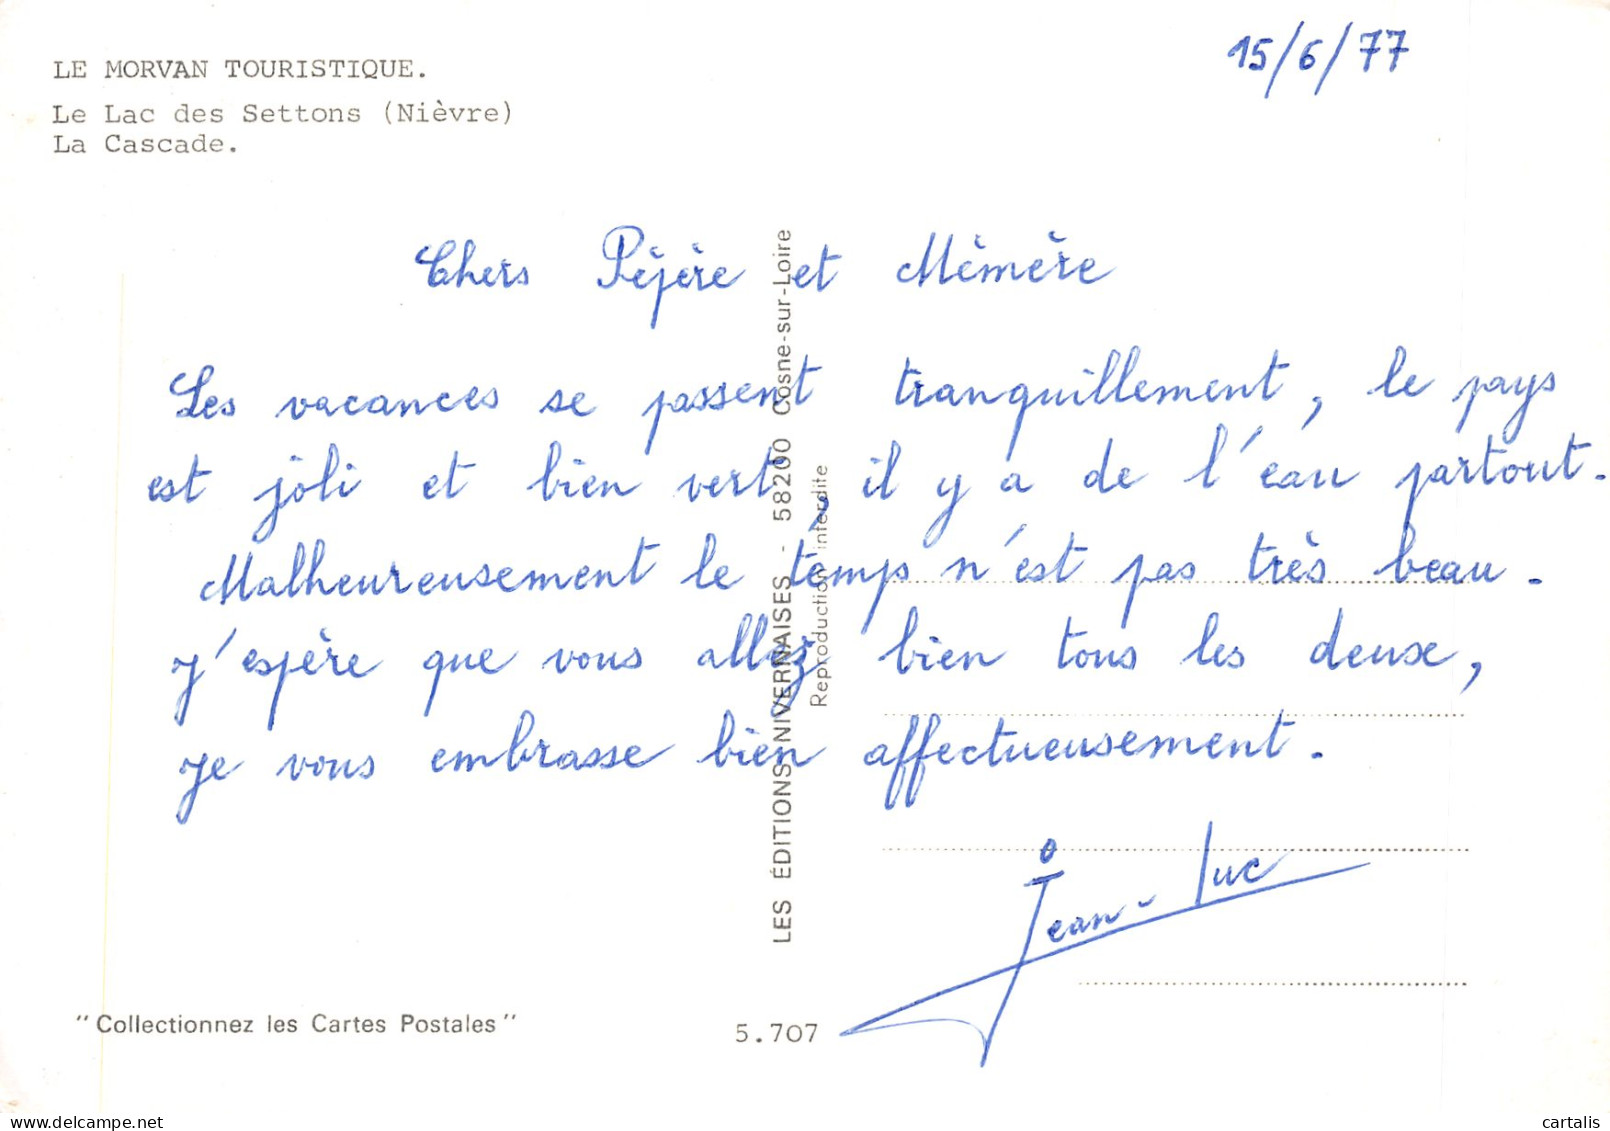 15/6/77
LE MORVAN TOURISTIQUE.
Le Lac des Settons (Nièvre)
La Cascade.
Chers Pépère et Mémère
Les vacances se passent tranquillement, le pays
est joli et bien vert, il y a de l'eau partout.
Malheureusement le temps n'est pas très beau.
J'espère que vous allez bien tous les deux,
Je vous embrasse bien affectueusement.
Jean-Luc
LES ÉDITIONS NIVERNAISES - 58200 Cosne-sur-Loire
Reproduction interdite
"Collectionnez les Cartes Postales"
5.707
delcampe.net
cartalis